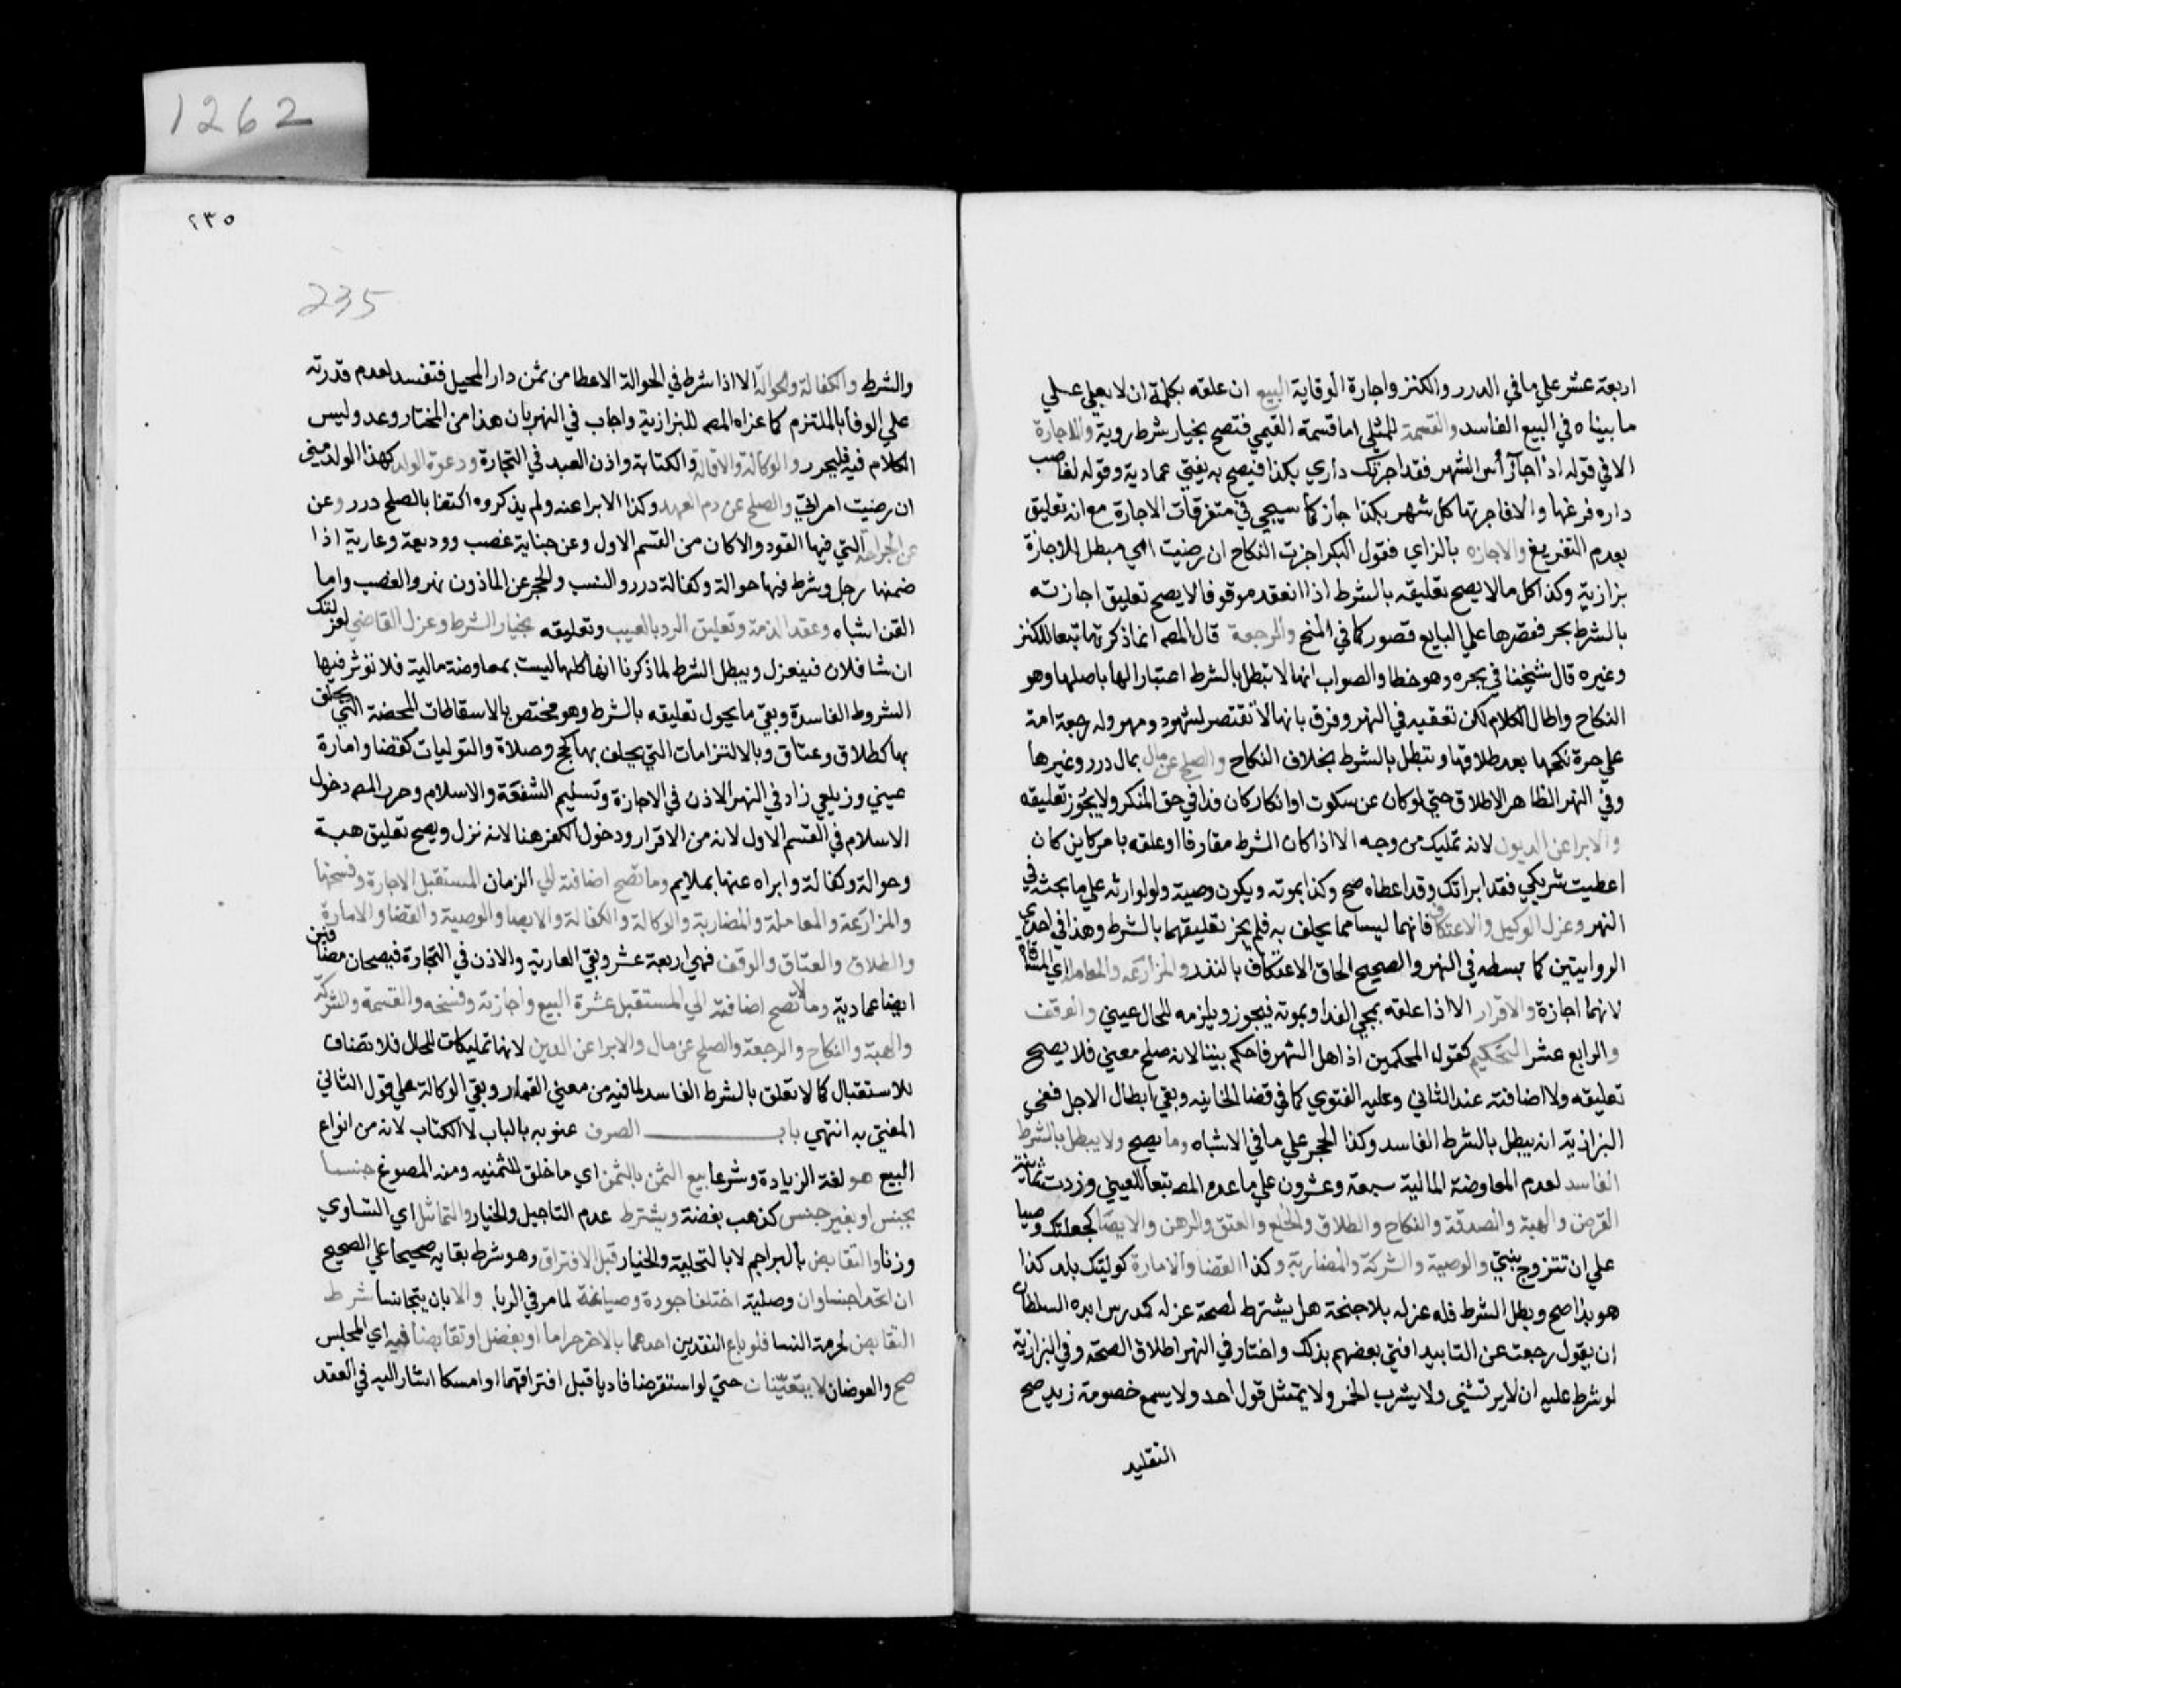 1262
اربعة عشر علي ما في الدرر والكنز واجارة الوقاية البيع ان علقه بكلمة ان لا بعلي علي
ما بيناه في البيع الفاسد والقسمة للمثلي اما قسمة القيمي فتصح بخيار شرط روية والاجارة
الا في قوله اذا جآ رأس الشهر فقد اجرتك داري بكذا فيصح به يفتي عمادية وقوله لغاصب
داره فرغها والا فاجرتها كل شهر بكذا جاز كما سيجي في متفرقات الاجارة مع انه تعليق
بعدم التفريغ والاجازه بالزاي فقول البكر اجزت النكاح ان رضيت امي مبطل للاجازة
بزازية وكذا كل مالا يصح تعليقه بالشرط اذا انعقد موقوفا لا يصح تعليق اجازته
بالشرط بحر فقصرها علي البايع قصور كما في المنح والرجعة قال المص انما ذكرتها تبعا للكنز
وغيره قال شيخنا في بحره وهو خطا والصواب انها لا تبطل بالشرط اعتبارا لها باصلها وهو
النكاح واطال الكلام لكن تعقبه في النهر وفرق بانها لا تفتقر لشهود ومهر وله رجعة امة
علي حرة نكحها بعد طلاقها وتبطل بالشرط بخلاف النكاح والصلح عن مال بمال درر وغيرها
وفي النهر الظاهر الاطلاق حتي لو كان عن سكوت او انكار كان فدا في حق المنكر ولا يجوز تعليقه
والابرا عن الديون لانه تمليك من وجه الا اذا كان الشرط مقارفا او علقه بامر كاين كان
اعطيت شريكي فقد ابراتك وقد اعطاه صح وكذا بموته ويكون وصية ولو لوارثه علي ما بحثه في
النهر وعزل الوكيل والاعتكاف فانهما ليسا مما يحلف به فلم يجز تعليقهما بالشرط وهذا في احدي
الروايتين كما بسطه في النهر والصحيح الحاق الاعتكاف بالنذر والمزارعة والمعاملة اي المساقاة
لانهما اجازة والاقرار الا اذا علقه بمجي الغد او بموته فيجوز ويلزمه للحال عيني والوقف
والرابع عشر التحكيم كقول المحكمين اذا اهل الشهر فاحكم بيننا لانه صلح معني فلا يصح
تعليقه ولا اضافته عند الثاني وعليه الفتوي كما في قضا الخانيه وبقي ابطال الاجل ففي
البزازية انه يبطل بالشرط الفاسد وكذا الحجر علي ما في الاشباه وما يصح ولا يبطل بالشرط
الفاسد لعدم المعاوضة المالية سبعة وعشرون علي ما عده المص تبعا للعيني وزدت ثمانية
القرض والهبة والصدقة والنكاح والطلاق والخلع والعتق والرهن والايصا كجعلتك وصيا
علي ان تتزوج بنتي والوصية والشركة والمضاربة وكذا القضا والامارة كوليتك بلد كذا
هو بدا صح وبطل الشرط فله عزله بلا جنحة هل يشترط لصحة عزله كمدرس ابده السلطان
ان يقول رجعت عن التابيد افتي بعضهم بذلك واختار في النهر اطلاق الصحة وفي البزازية
لو شرط عليه ان لا يرتشي ولا يشرب الخمر ولا يمتثل قول احد ولا يسمع خصومة زيد صح
التقليد
٢٣٥
235
والشرط والكفالة والحوالة الا اذا شرط في الحوالة الاعطا من ثمن دار المحيل فتفسد لعدم قدرته
علي الوفا بالملتزم كما عزاه المص للبزازية واجاب في النهر بان هذا من المختار وعد وليس
الكلام فيه فليحرر والوكالة والاقالة والكتابة واذن العبد في التجارة ودعوة الولد كهذا الولد مني
ان رضيت امراتي والصلح عن دم العمد وكذا الابرا عنه ولم يذكروه اكتفا بالصلح درر وعن
عن الجراحة التي فيها القود والا كان من القسم الاول وعن جناية غصب ووديعة وعارية اذا
ضمنها رجل وشرط فيها حوالة وكفالة درر والنسب والحجر عن الماذون نهر والغصب واما
القن اشباه وعقد الذمة وتعليق الرد بالعيب وتعليقه بخيار الشرط وعزل القاضي لعزلتك
ان شا فلان فينعزل ويبطل الشرط لما ذكرنا انها كلها ليست بمعاوضة مالية فلا تؤثر فيها
الشروط الفاسدة وبقي ما يجول تعليقه بالشرط وهو مختص بالاسقاطات المحضة التي يحلف
بها كطلاق وعتاق وبالالتزامات التي يحلف بها كحج وصلاة والتوليات كقضا وامارة
عيني وزيلعي زاد في النهر الاذن في الاجازة وتسليم الشفعة والاسلام وحرر المص دخول
الاسلام في القسم الاول لانه من الاقرار ودخول الكفر هنا لانه نزل ويصح تعليق هبة
وحوالة وكفالة وابراه عنها بملايم وما تصح اضافته الي الزمان المستقبل الاجارة وفسخها
والمزارعة والمعاملة والمضاربة والوكالة والكفالة والايصا والوصية والقضا والامارة
والطلاق والعتاق والوقف فهي اربعة عشر وبقي العارية والاذن في التجارة فيصحان مضافين
ايضا عمادية وما لا تصح اضافته الي المستقبل عشرة البيع واجازته وفسخه والقسمة والشركة
والهبة والنكاح والرجعة والصلح عن مال والابرا عن الدين لانها تمليكات للحال فلا تضاف
للاستقبال كما لا تعلق بالشرط الفاسد لما فيه من معني القمار وبقي الوكالة علي قول الثاني
المفتي به انتهي باب الصرف عنونه بالباب لا الكتاب لانه من انواع
البيع هو لغة الزيادة وشرعا بيع الثمن بالثمن اي ما خلق للثمنيه ومنه المصوغ جنسا
بجنس او بغير جنس كذهب بفضة ويشترط عدم التاجيل والخيار والتماثل اي التساوي
وزنا والتقابض بالبراجم لا بالتخلية والخيار قبل الافتراق وهو شرط بقايه صحيحا علي الصحيح
ان اتحدا جنسا وان وصلية اختلفا جودة وصياغة لما مر في الربا والا بان يتجانسا شرط
التقابض لحرمة النسا فلو باع النقدين احدهما بالاخر جزافا او بفضل وتقابضا فيه اي المجلس
صح والعوضان لا يتعينان حتي لو استقرضا فاديا قبل افتراقهما او امسكا اشار اليه في العقد